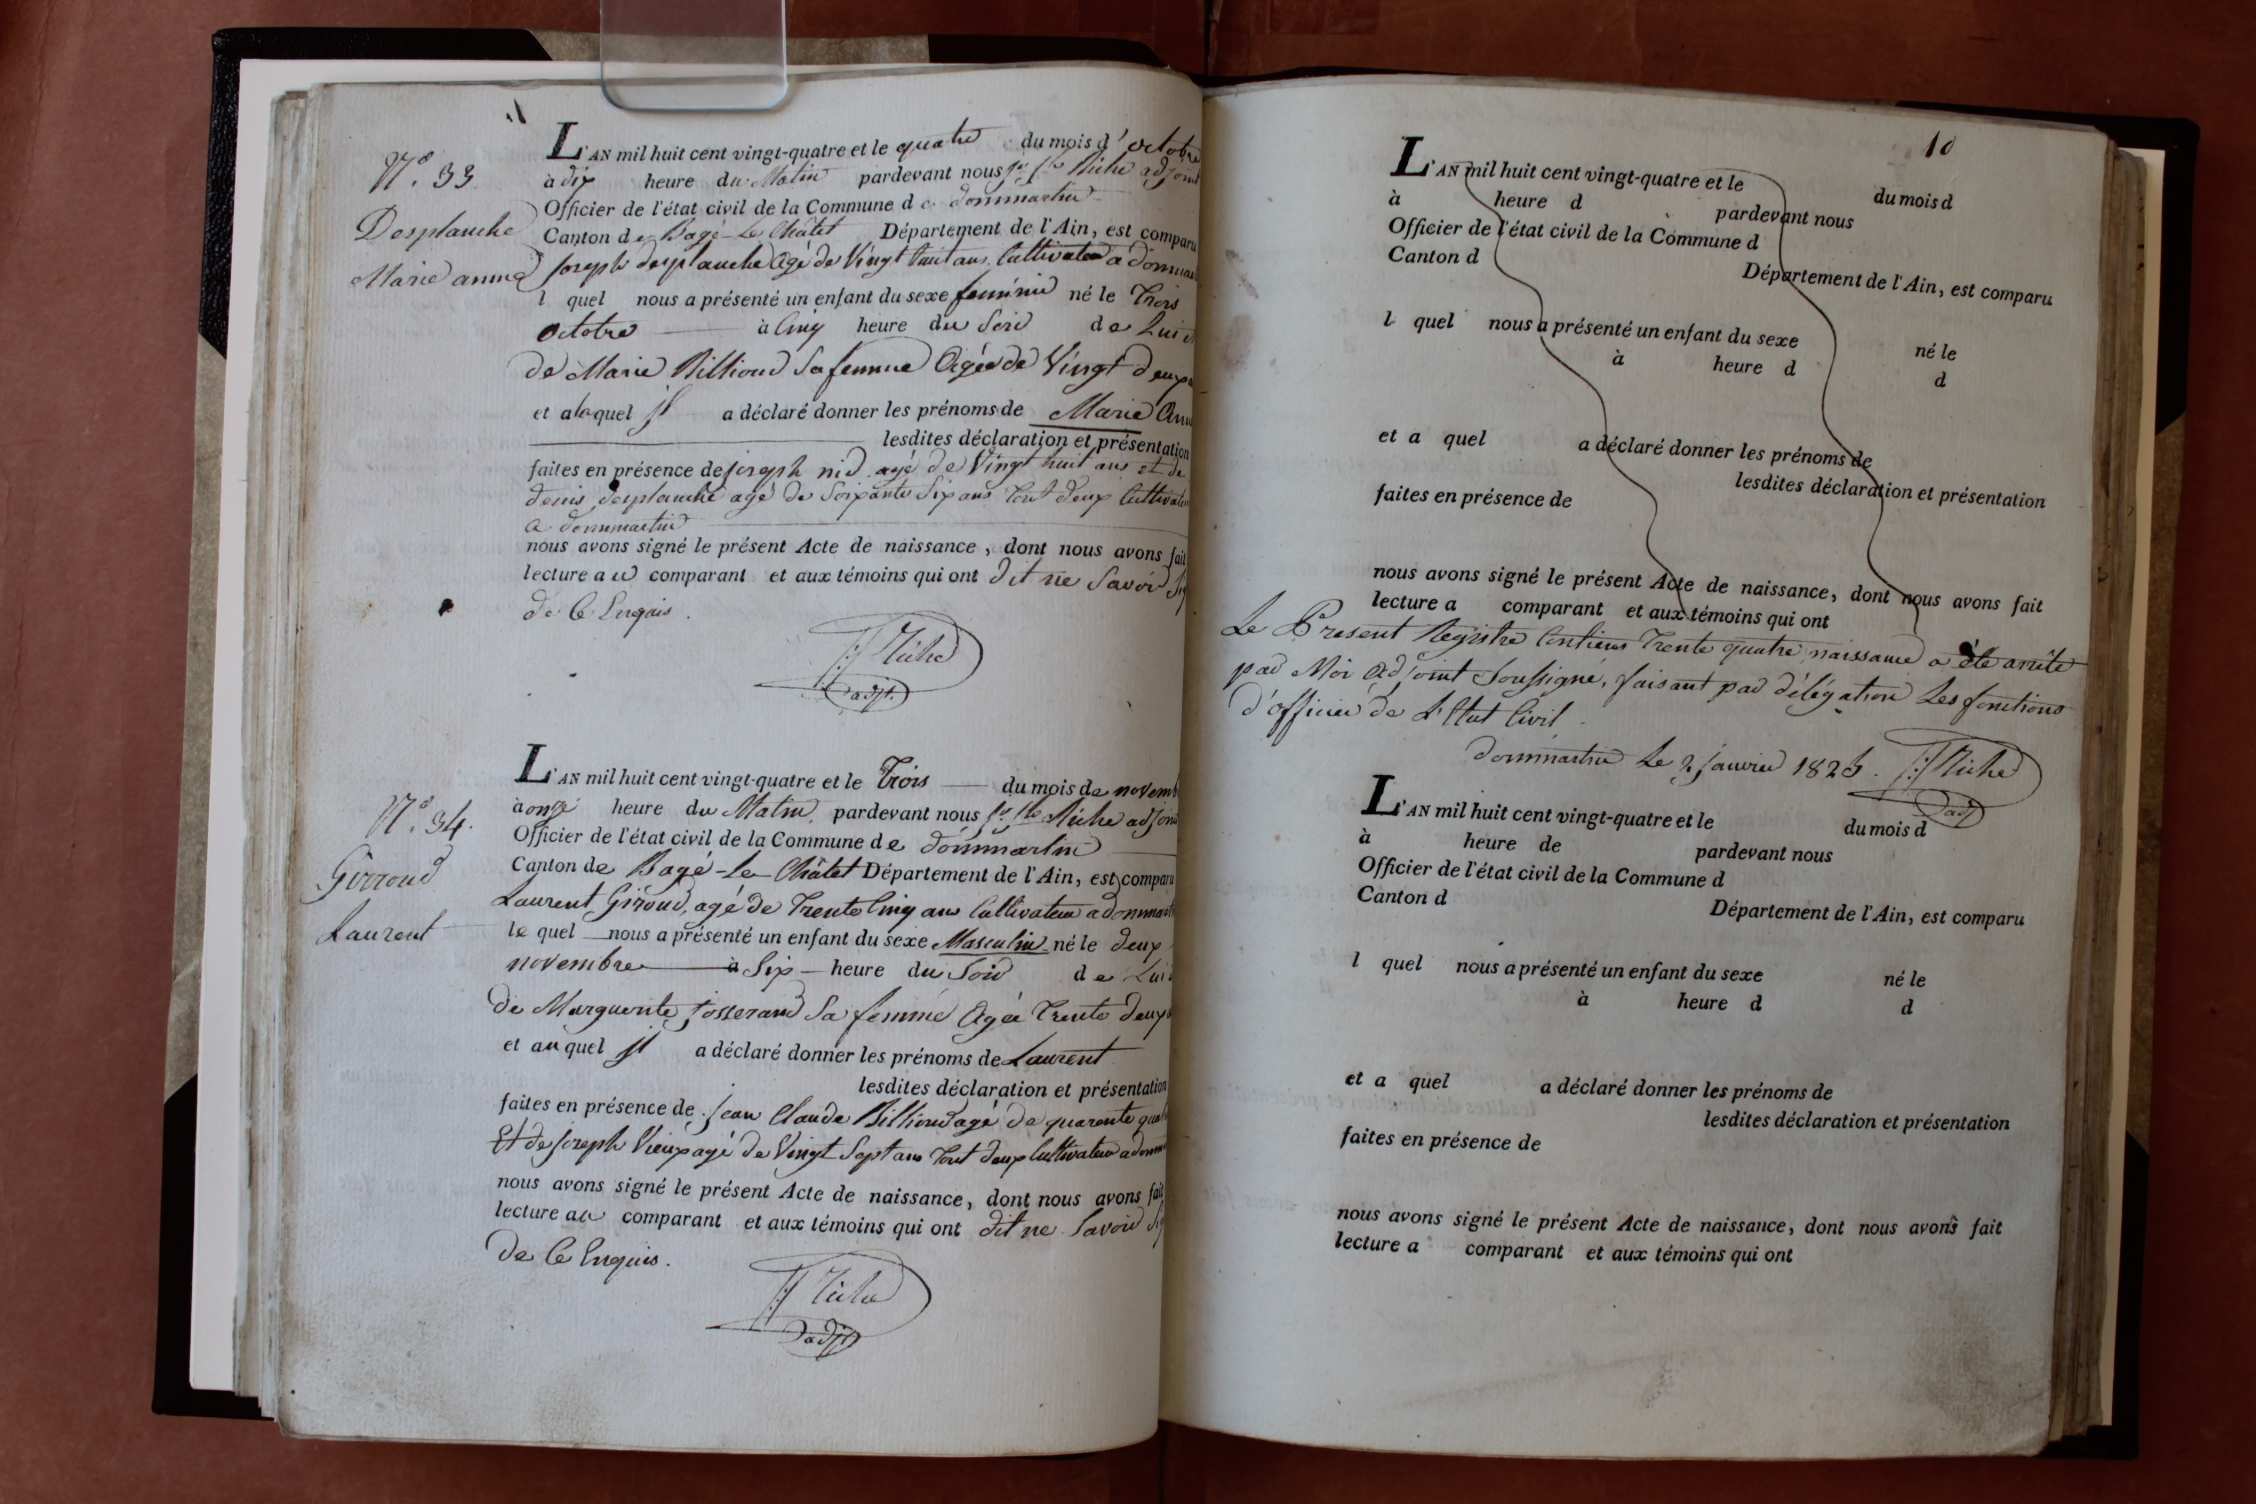 N.o 33.
Desplanche
Marie anne
L'AN mil huit cent vingt-quatre et le quatre du mois d'octobre
à dix heure du Matin pardevant nous adjoint
Officier de l'état civil de la Commune de dommartin
Canton de Bagé-Le-Châtel Département de l'Ain, est comparu
joseph desplanche Agé de Vingt huit ans Cultivateur a dommar
l quel nous a présenté un enfant du sexe feminin né le Trois
octobre à Cinq heure du Soir de Lui et
de Marie Billioud Sa femme Agée de Vingt deux
et a laquel jl a déclaré donner les prénoms de Marie Ann
lesdites déclaration et présentation
faites en présence de joseph agé de Vingt huit ans et de
denis desplanche agé de Soixante Six ans Tout deux Cultivateur
a dommartin
nous avons signé le présent Acte de naissance, dont nous avons fait
lecture au comparant et aux témoins qui ont dit ne Savoir Sig
de Ce Enquis.
adjt.
N.o 34.
Girroud
Laurent
L'AN mil huit cent vingt-quatre et le Trois du mois de novemb
à onze heure du Matin pardevant nous adjoint
Officier de l'état civil de la Commune de dommartin
Canton de Bagé-Le-Châtel Département de l'Ain, est comparu
Laurent Giroud, agé de Trente Cinq ans Cultivateur a dommart
le quel nous a présenté un enfant du sexe Masculin né le deux
novembre à Six heure du Soir de Lui
de Marguerite josserand Sa femme Agée Trente deux
et au quel jl a déclaré donner les prénoms de Laurent
lesdites déclaration et présentation
faites en présence de jean Claude Billioud agé de quarente quat
Et de joseph Vieux agé de Vingt Sept ans Tout deux Cultivateur a domm
nous avons signé le présent Acte de naissance, dont nous avons fait
lecture au comparant et aux témoins qui ont dit ne Savoir Sig
de Ce Enquis.
adjt
10
L'AN mil huit cent vingt-quatre et le du mois d
à heure d pardevant nous
Officier de l'état civil de la Commune d
Canton d Département de l'Ain, est comparu
l quel nous a présenté un enfant du sexe né le
à heure d d
et a quel a déclaré donner les prénoms de
lesdites déclaration et présentation
faites en présence de
nous avons signé le présent Acte de naissance, dont nous avons fait
lecture a comparant et aux témoins qui ont
Le Present Registre Contient Trente quatre naissance a été arrêté
par Moi Adjoint Soussigné, faisant par délégation Les fonctions
d'officier de L'Etat Civil.
dommartin Le 2 janvier 1825.
adj
L'AN mil huit cent vingt-quatre et le du mois d
à heure de pardevant nous
Officier de l'état civil de la Commune d
Canton d Département de l'Ain, est comparu
l quel nous a présenté un enfant du sexe né le
à heure d d
et a quel a déclaré donner les prénoms de
lesdites déclaration et présentation
faites en présence de
nous avons signé le présent Acte de naissance, dont nous avons fait
lecture a comparant et aux témoins qui ont